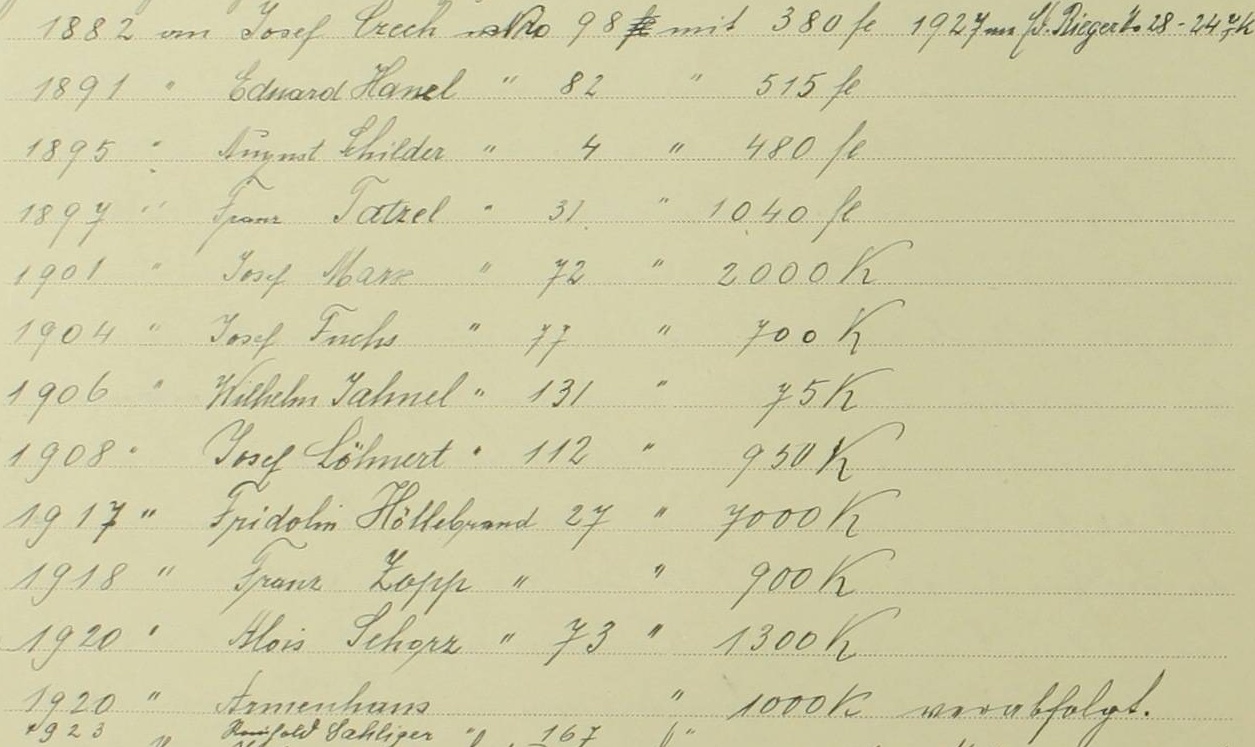 1882 an Josef Czech No 98 mit 380 fl 1927 an J. Rieger No 28 - 24
1891 " Eduard Hanel " 82 " 515 fl
1895 " August Schilder " 4 " 480 fl
1897 " Franz Tatzel " 31 " 1040 fl
1901 " Josef Marx " 72 " 2000 K
1904 " Josef Fuchs " 77 " 700 K
1906 " Wilhelm Jahnel " 131 " 75 K
1908 " Josef Löhnert " 112 " 950 K
1917 " Fridolin Höllebrand 27 " 7000 K
1918 " Franz Zopp " " 900 K
1920 " Alois Schorz " 73 " 1300 K
1920 " Armenhaus " 1000 K verabfolgt.
1923 Sahliger " 167 "